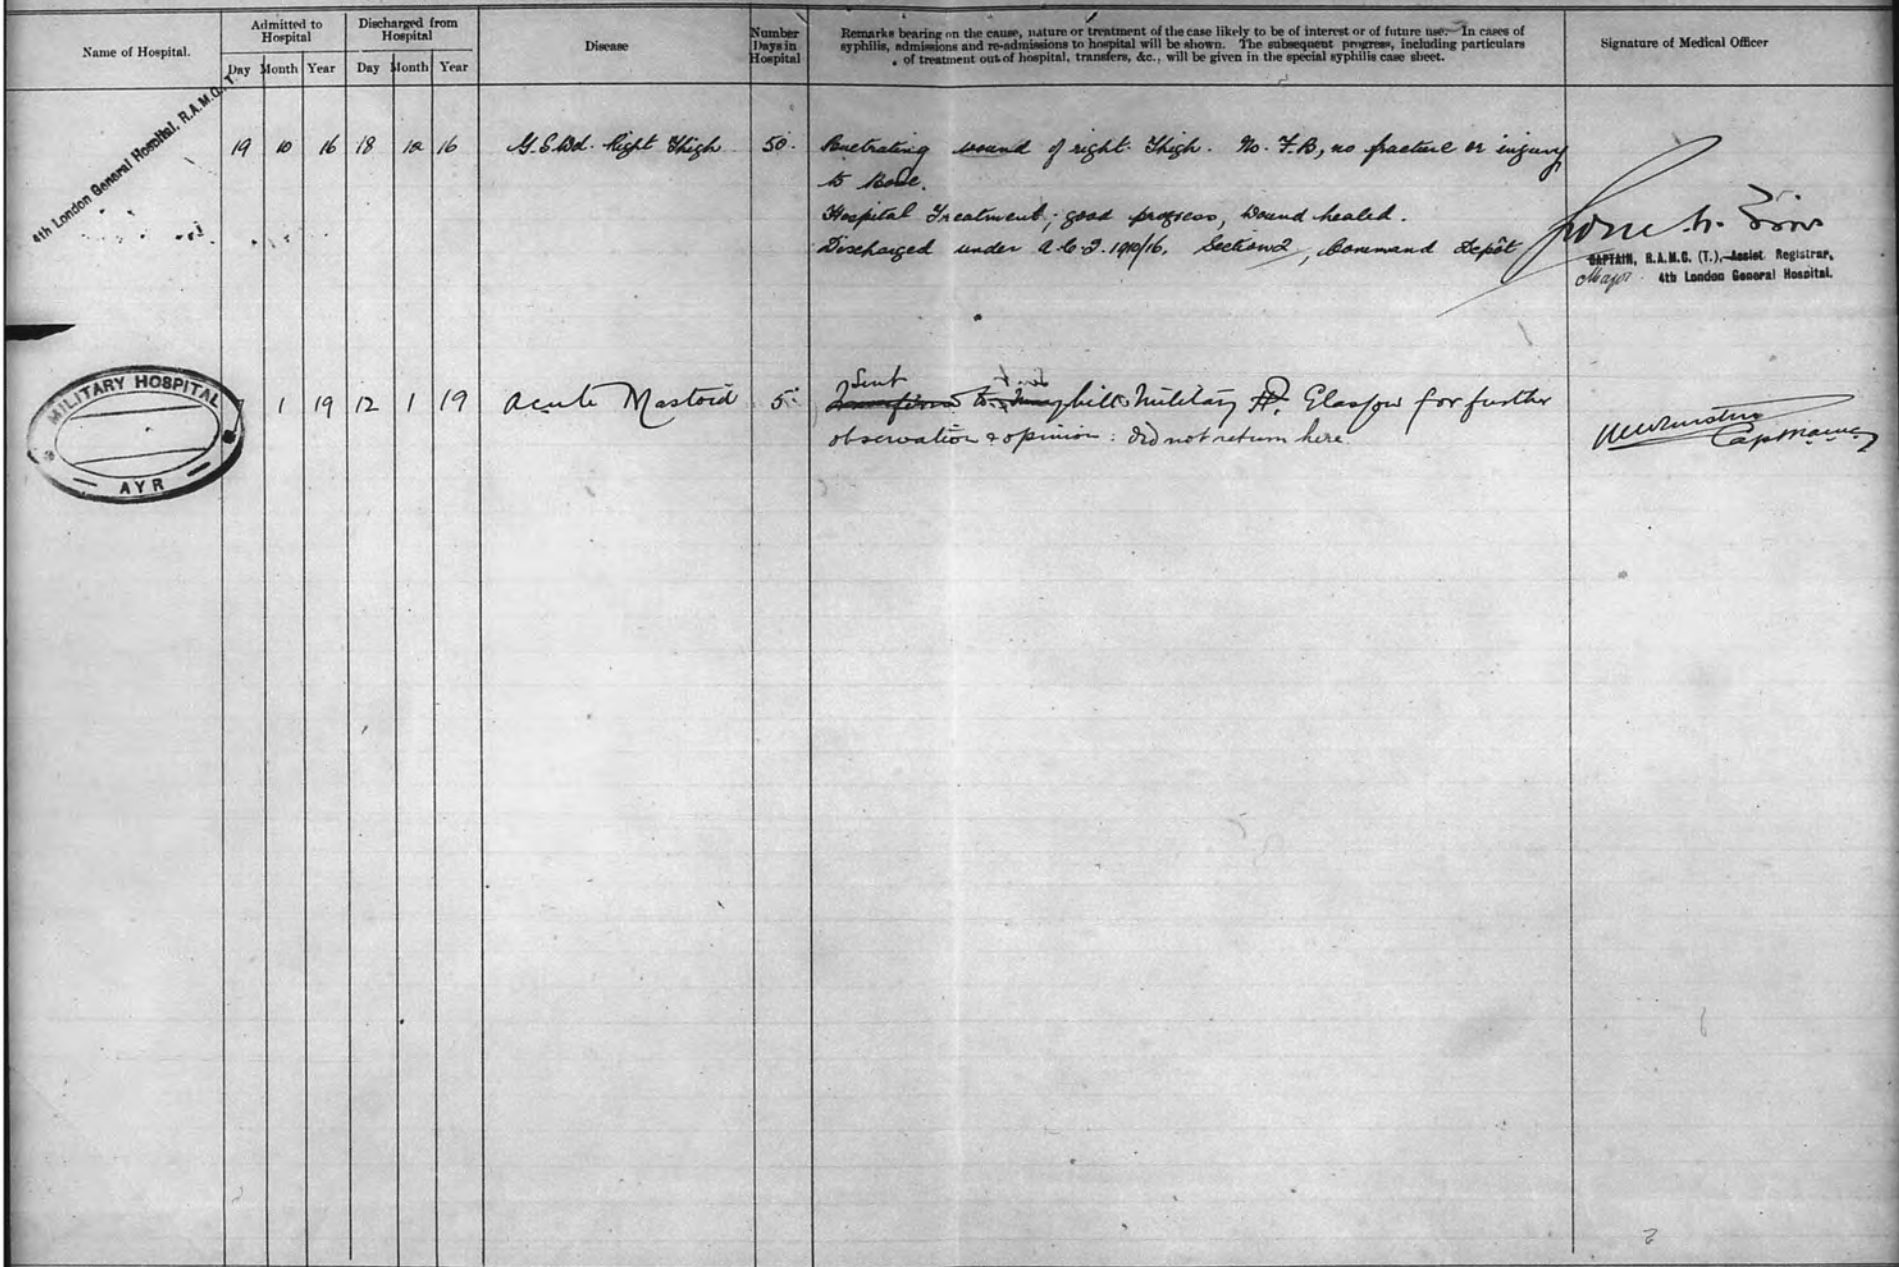 Name of Hospital.
Admitted to Hospital
Discharged from Hospital
Day Month Year Day Month Year
Disease
Number Days in Hospital
Remarks bearing on the cause, nature or treatment of the case likely to be of interest or of future use. In cases of
syphilis, admissions and re-admissions to hospital will be shown. The subsequent progress, including particulars
of treatment out of hospital, transfers, &c., will be given in the special syphilis case sheet.
Signature of Medical Officer
4th London General Hospital, R.A.M.C.
19 10 16 18 10 16 G.S.Wd. Right Thigh 50. Penetrating wound of right Thigh. No. F.B, no fracture or injury
to Bone.
Hospital Treatment; good progress, Wound healed.
Discharged under A.C.I. 1910/16, Section 2, Command Depôt
CAPTAIN, R.A.M.C. (T.), Assist Registrar,
Major 4th London General Hospital.
MILITARY HOSPITAL
AYR
1 19 12 1 19 Acute Mastoid 5
Sent
to hill Military H. Glasgow for further
observation & opinion: did not return here.